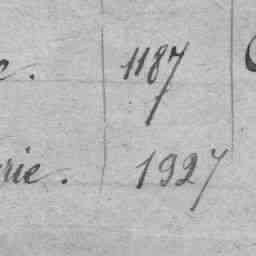 c. 1187
rie. 1927